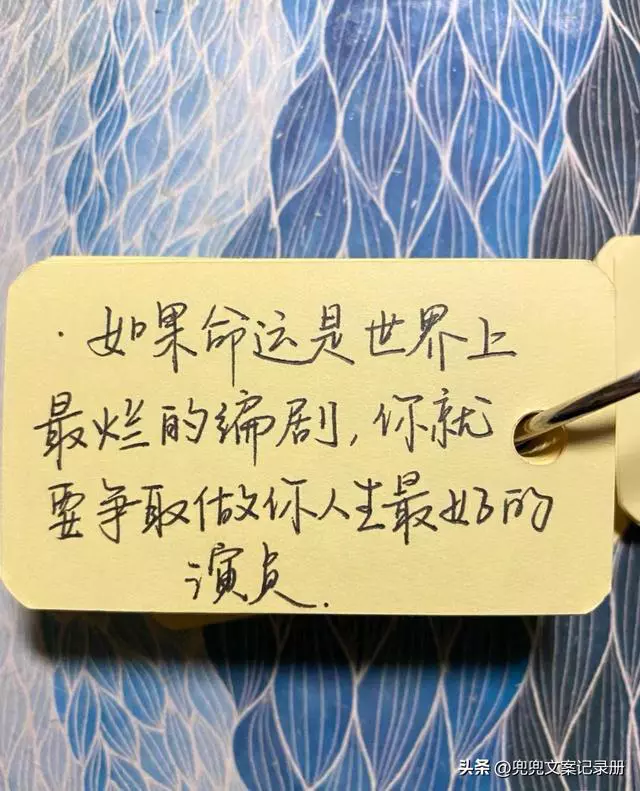 ·如果命运是世界上
最烂的编剧,你就
要争取做你人生最好的
演员.
头条 @兜兜文案记录册